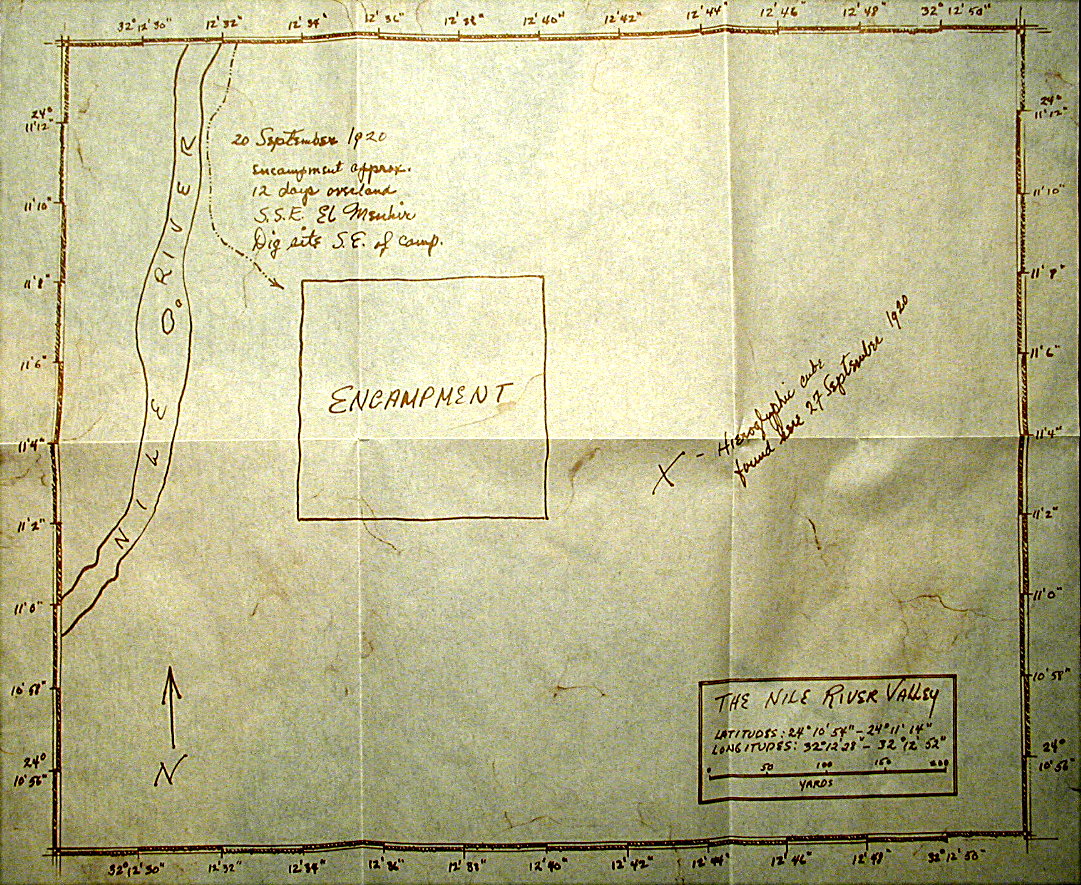 32° 12' 30" 12' 32" 12' 34" 12' 36" 12' 38" 12' 40" 12' 42" 12' 44" 12' 46" 12' 48" 32° 12' 50"
24° 11' 12"
11' 10"
11' 8"
11' 6"
11' 4"
11' 2"
11' 0"
10' 58"
24° 10' 56"
NILE RIVER
20 September 1920
encampment approx.
12 days overland
S.S.E. El Menhir
Dig site S.E. of camp.
ENCAMPMENT
X - Hieroglyphic cube
found here 27 September 1920
N
24° 11' 12"
11' 10"
11' 8"
11' 6"
11' 4"
11' 2"
11' 0"
10' 58"
24° 10' 56"
THE NILE RIVER VALLEY
LATITUDES: 24° 10' 54" - 24° 11' 14"
LONGITUDES: 32° 12' 28" - 32° 12' 52"
0 50 100 150 200
YARDS
32° 12' 30" 12' 32" 12' 34" 12' 36" 12' 38" 12' 40" 12' 42" 12' 44" 12' 46" 12' 48" 32° 12' 50"